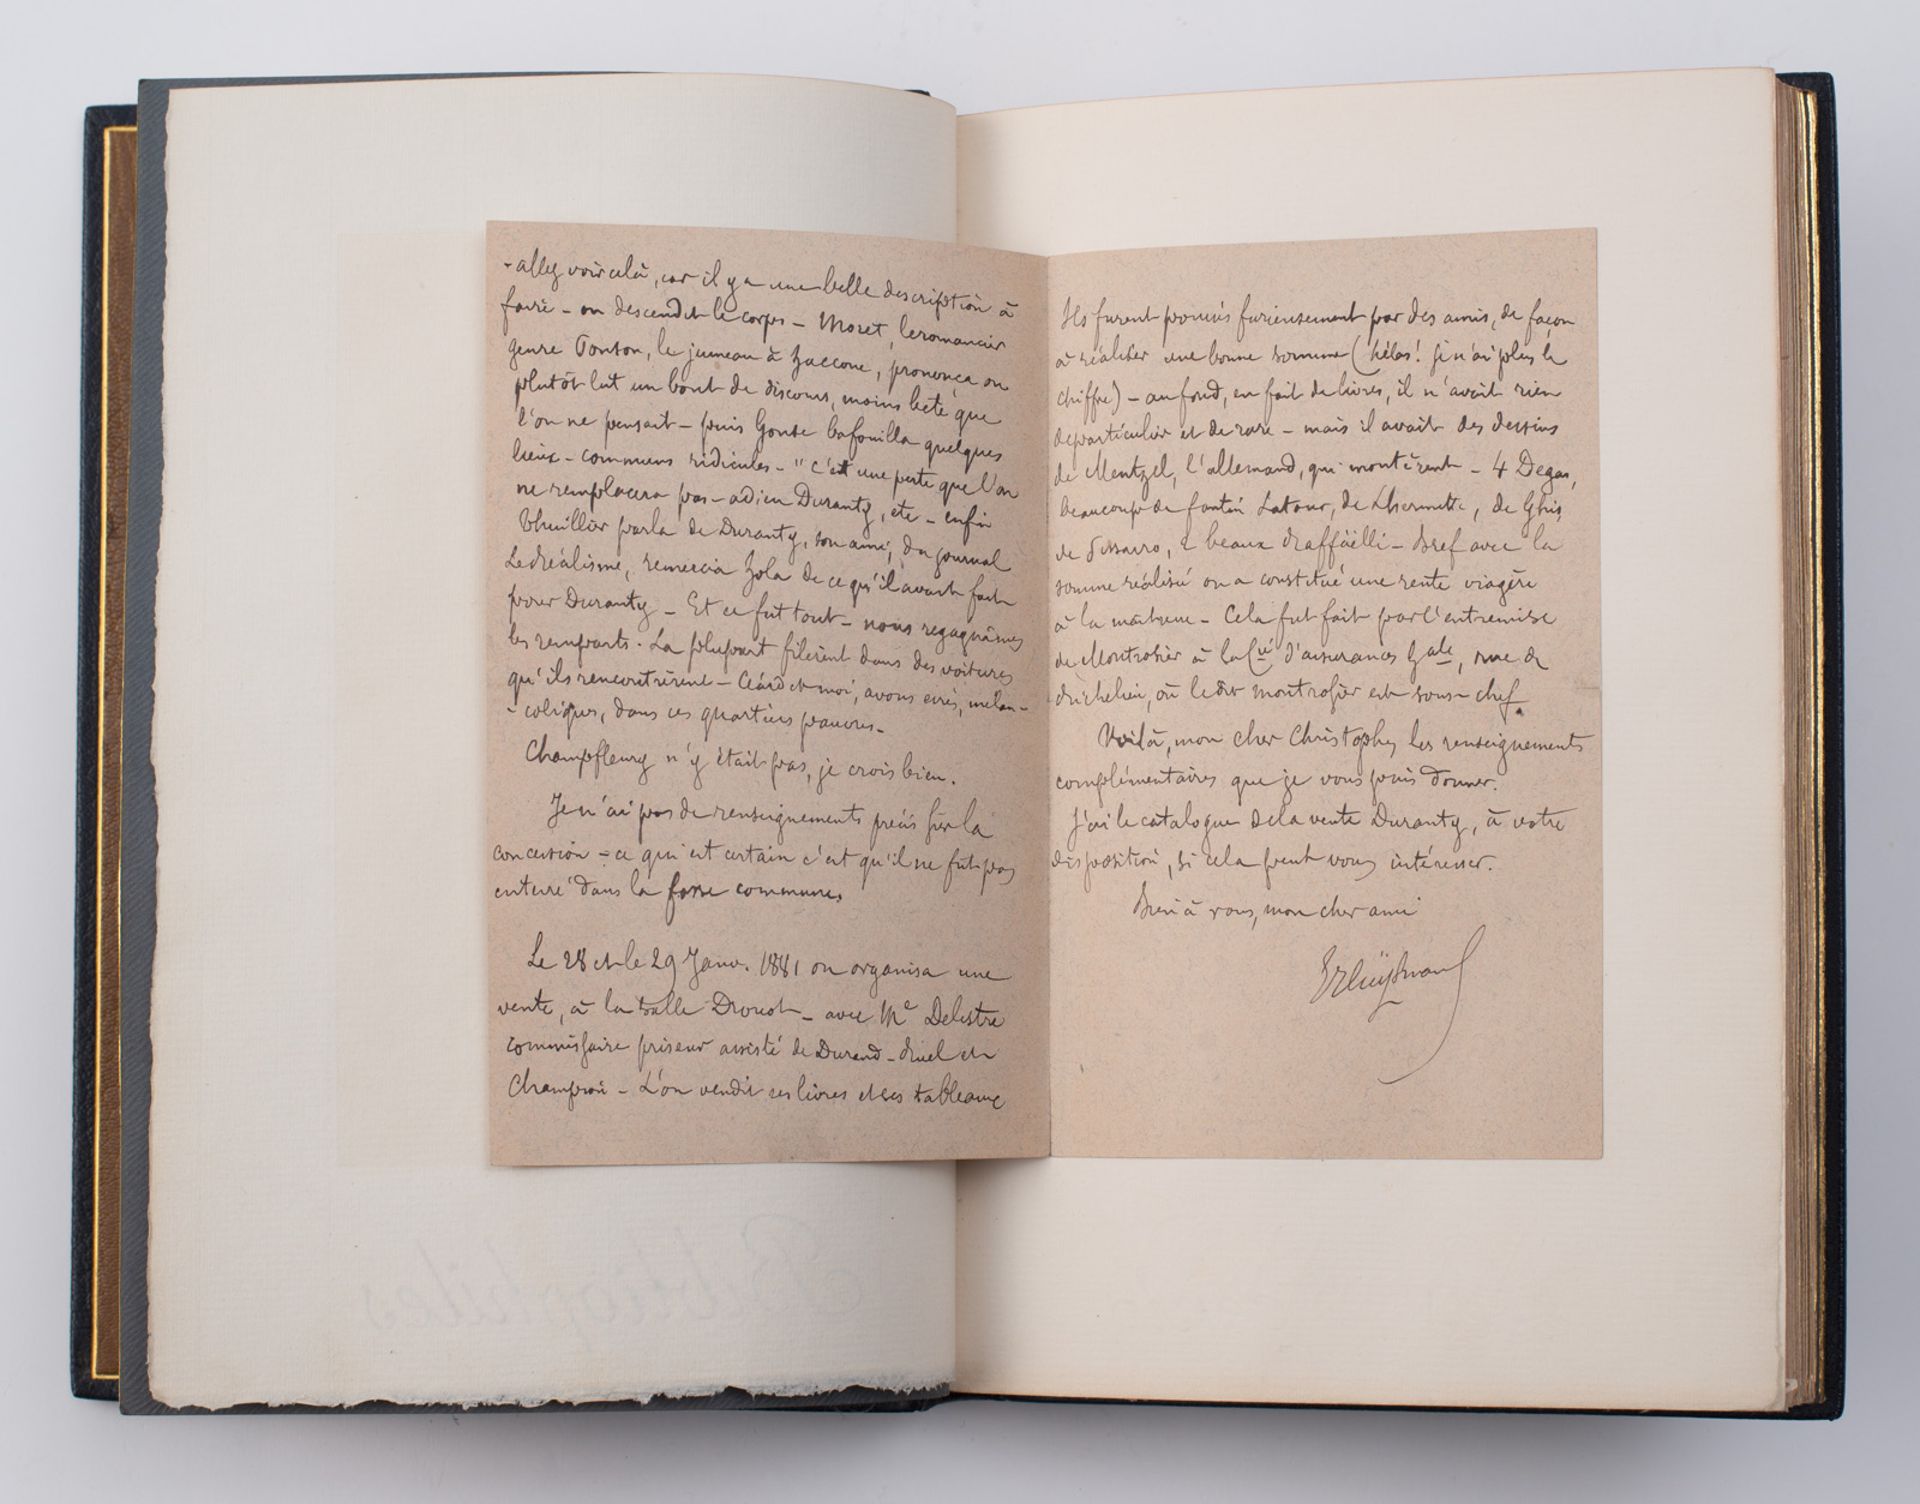 - allez voir celà, car il y a une belle description à
faire - on descendit le corps - Moret, le romancier
genre Ponson, le jumeau à Zaccone, prononça ou
plutôt lut un bout de discours, moins bete que
l'on ne pensait - puis Gonse bafouilla quelques
lieux - communs ridicules - "c'est une perte que l'on
ne remplacera pas - adieu Duranty, etc - enfin
Thuillier parla de Duranty, son ami, du journal
Le Réalisme, remercia Zola de ce qu'il avait fait
pour Duranty - Et ce fut tout - nous regagnâmes
les remparts. La plupart filèrent dans des voitures
qu'ils rencontrèrent - Céard et moi, avons errés, mélan-
- coliques, dans ces quartiers pauvres -
Champfleury n'y était pas, je crois bien.
Je n'ai pas de renseignements précis sur la
concession - ce qui est certain c'est qu'il ne fut pas
enterré dans la fosse commune.
Le 28 et le 29 Janv. 1881 on organisa une
vente, à la salle Drouot - avec Me Delestre
commissaire priseur assisté de Durand-Ruel et
Champion - L'on vendit ses livres et ses tableaux
Ils furent poussés furieusement par des amis, de façon
à réaliser une bonne somme (hélas! je n'ai plus le
chiffre) - au fond, en fait de livres, il n'avait rien
de particulier et de rare - mais il avait des dessins
de Mentzel, l'allemand, qui montèrent - 4 Degas,
beaucoup de Fantin Latour, de Lhermitte, de Ghis,
de Pissarro, 2 beaux Raffaëlli - Bref avec la
somme réalisée on a constitué une rente viagère
à la maitresse - Cela fut fait par l'entremise
de Montrosier à la Cie d'assurances Gale, rue de
Richelieu, où le dit Montrosier est sous-chef.
Voilà, mon cher Christophe, les renseignements
complémentaires que je vous puis donner.
J'ai le catalogue de la vente Duranty, à votre
disposition, si cela peut vous intéresser.
Bien à vous, mon cher ami
JKHuysmans
Bibliophiles